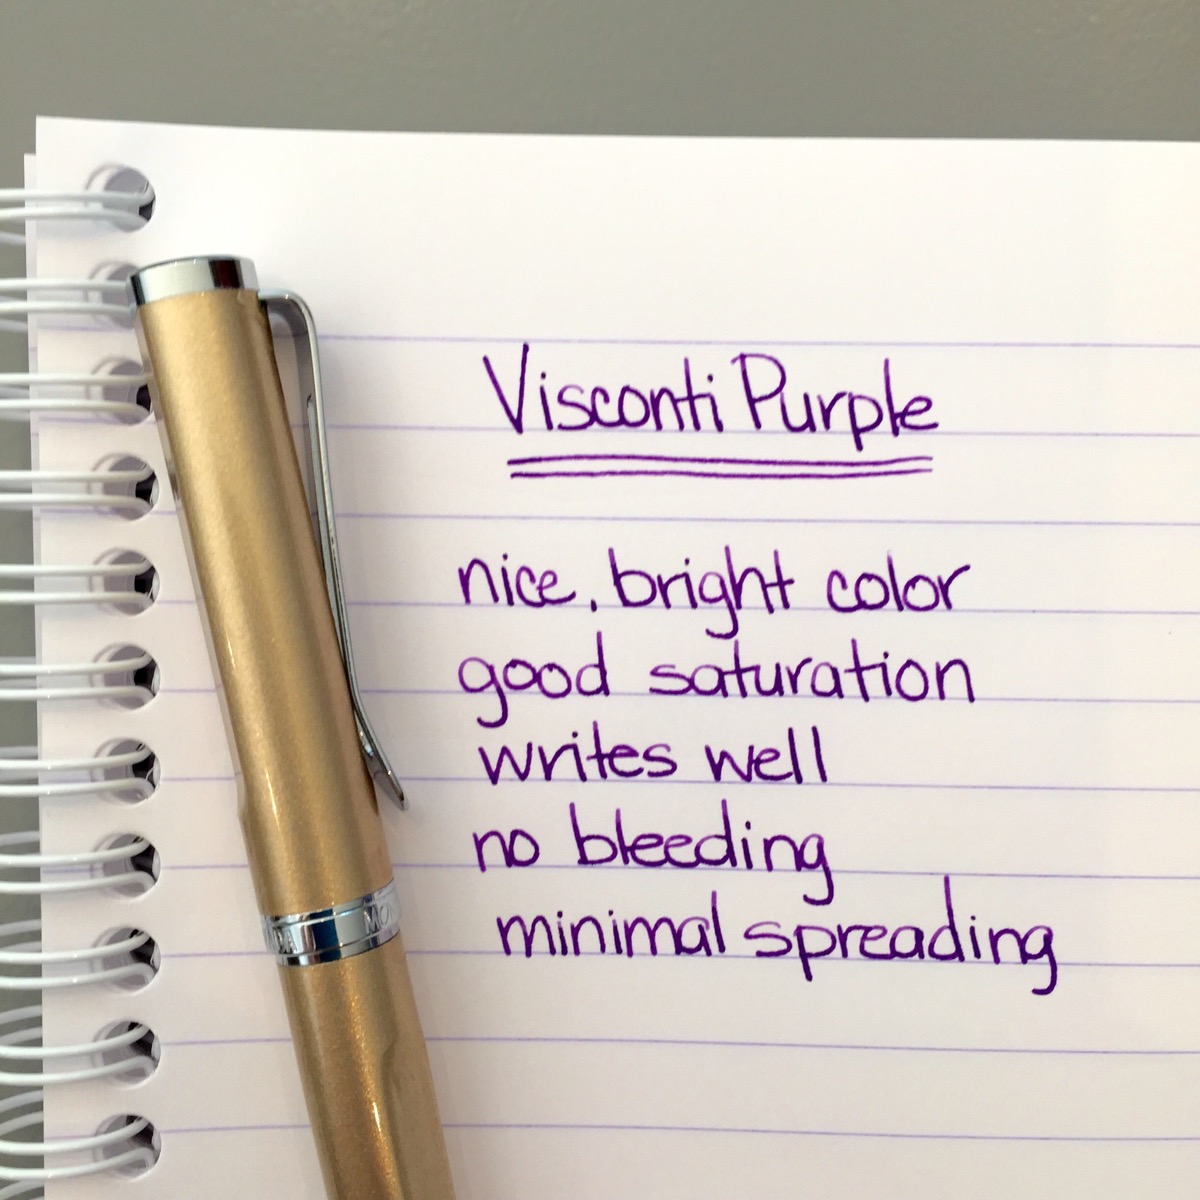 Visconti Purple
nice, bright color
good saturation
writes well
no bleeding
minimal spreading